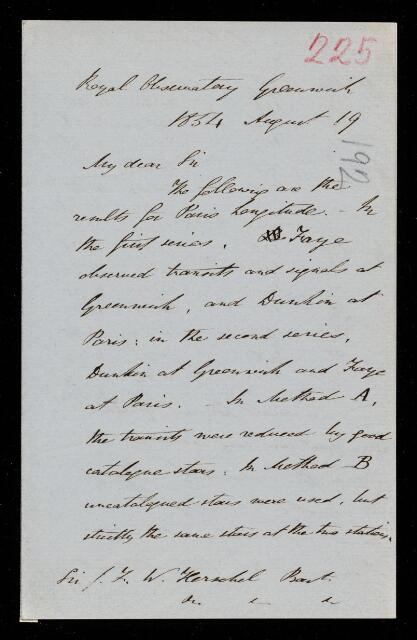 225
192
Royal Observatory Greenwich
1854 August 19
My dear Sir
The following are the
results for Paris Longitude. — In
the first series, Faye
observed transits and signals at
Greenwich, and Dunkin at
Paris: in the second series,
Dunkin at Greenwich and Faye
at Paris. — In Method A,
the transits were reduced by good
catalogue stars: In Method B
uncatalogued stars were used, but
strictly the same stars at the two stations.
Sir J. F. W. Herschel Bart.